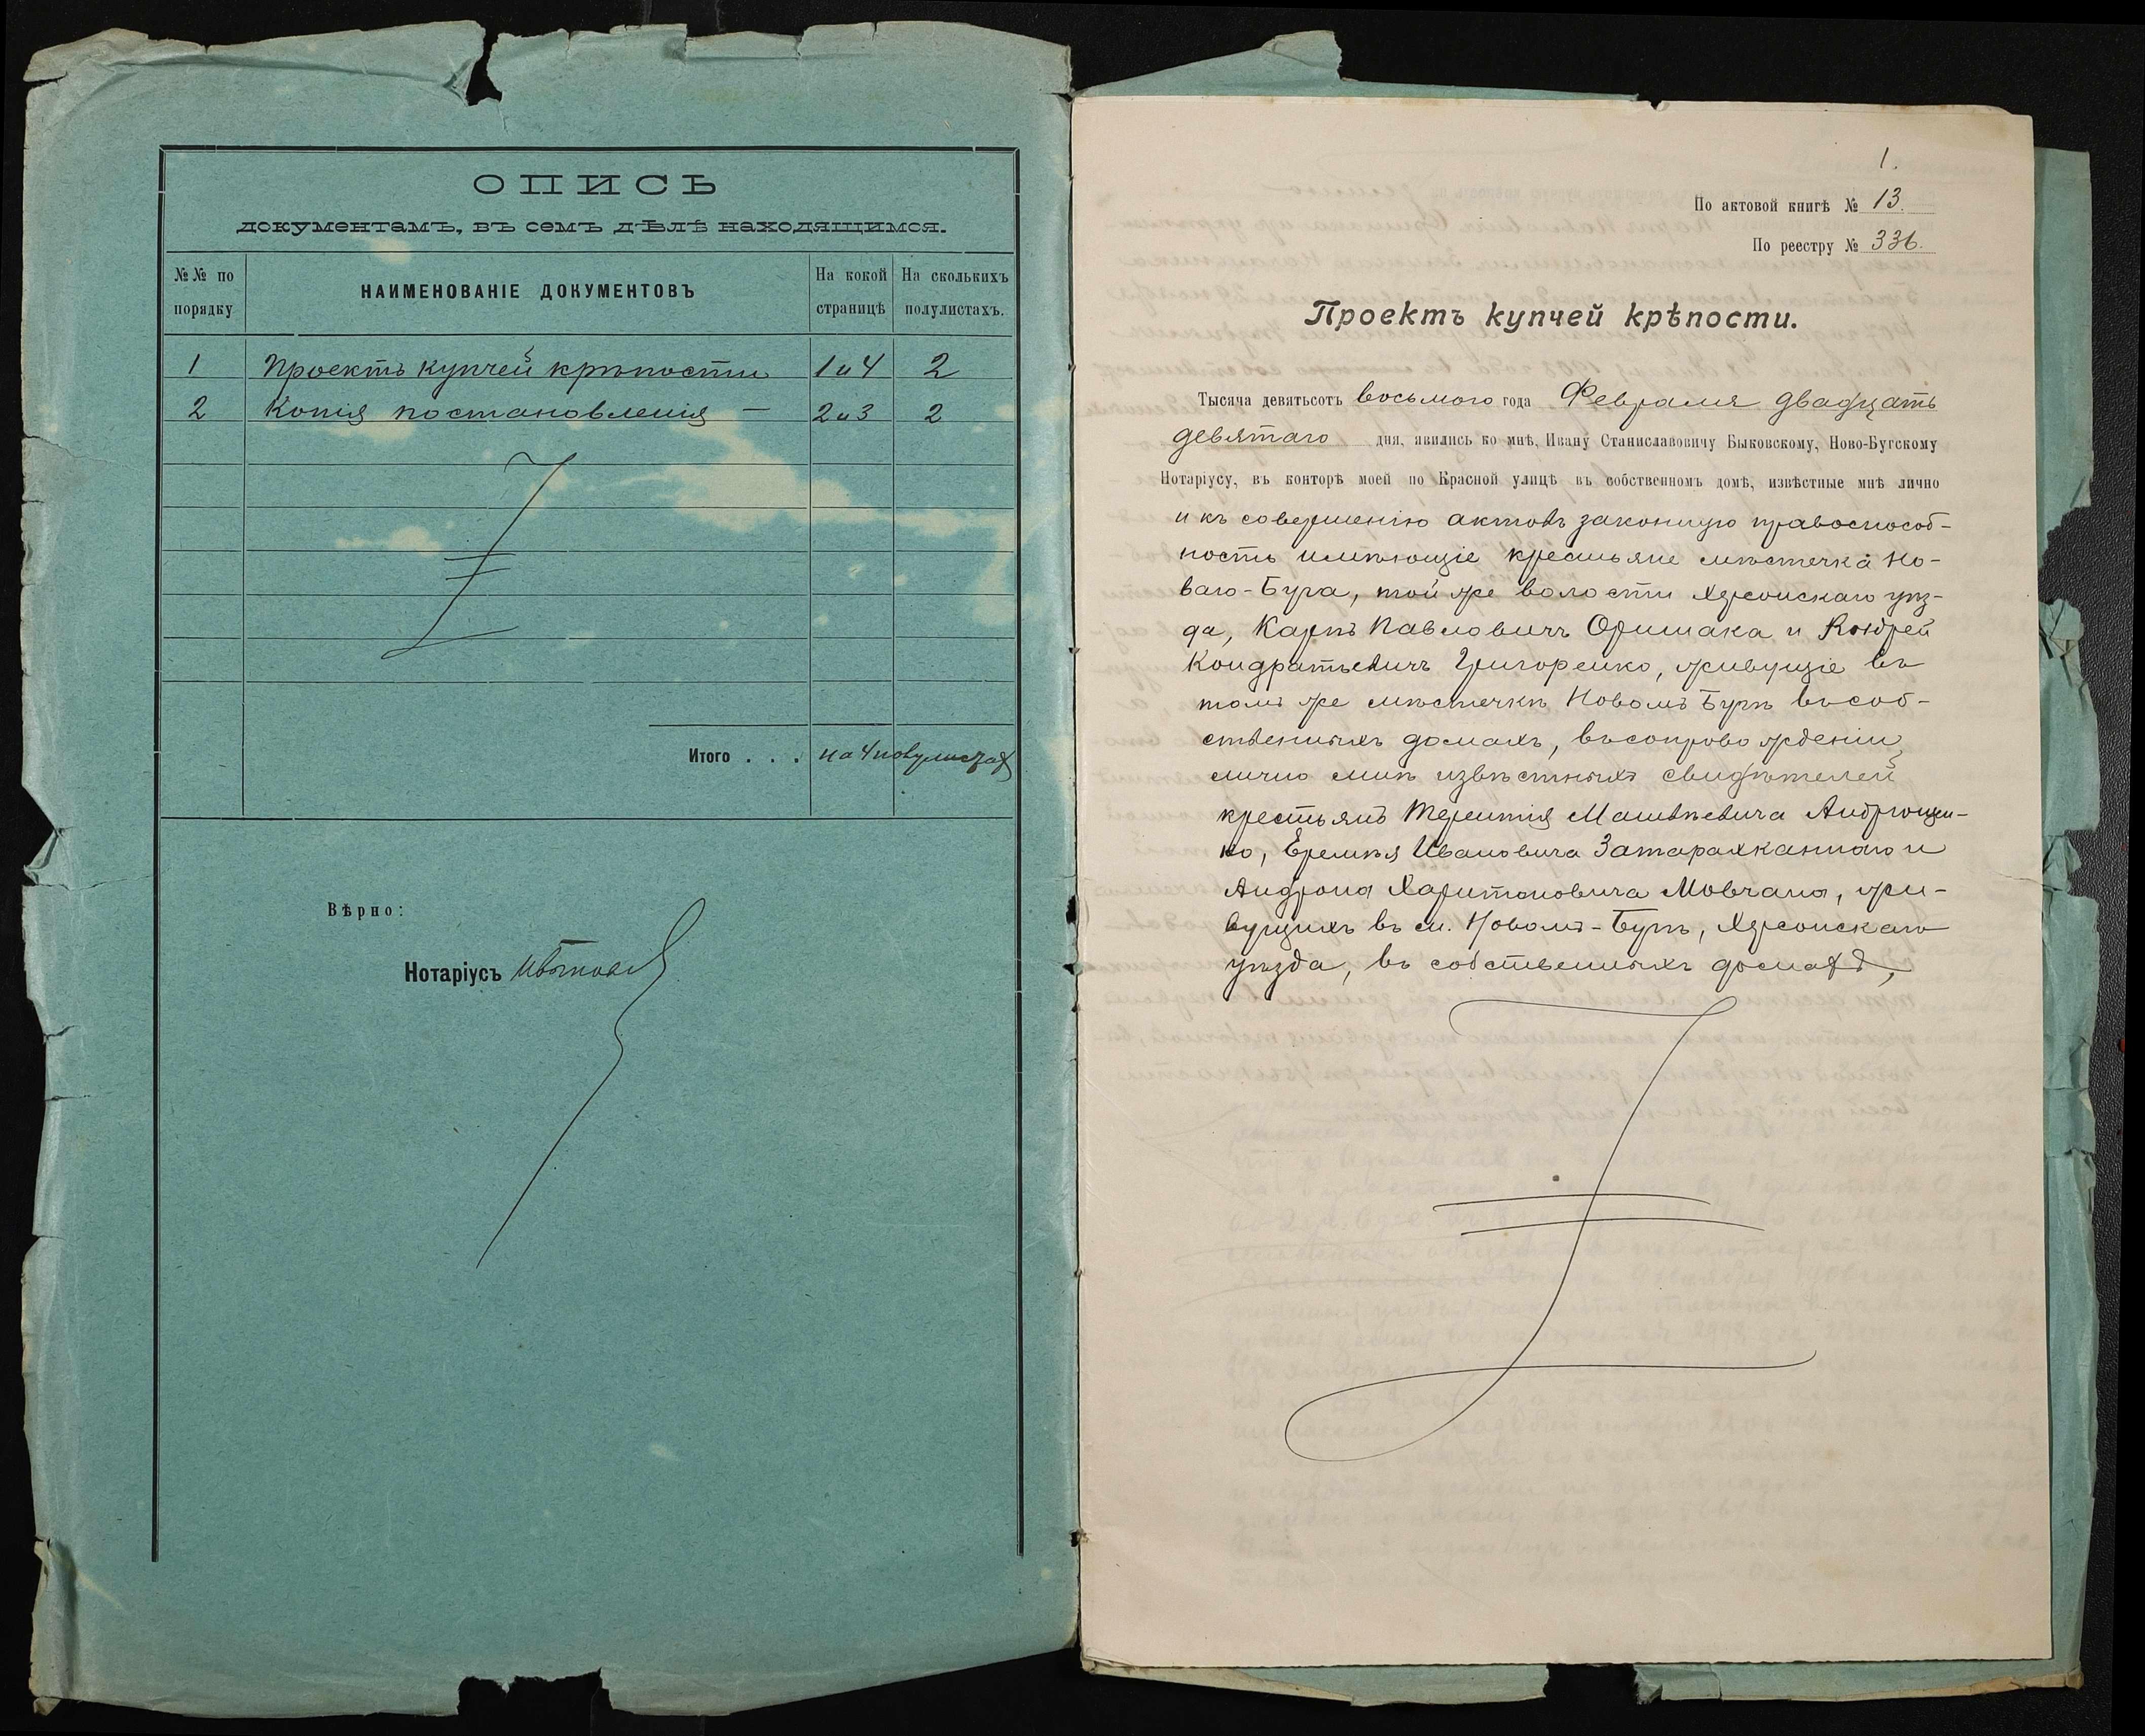 ОПИСЬ
документамъ, въ семъ дѣлѣ находящимся.
№№ по порядку
НАИМЕНОВАНІЕ ДОКУМЕНТОВЪ
На кокой страницѣ
На сколькихъ полулистахъ.
1 Проектъ купчей крѣпости 1 и 4 2
2 Копія постановленія — 2 и 3 2
Итого . . . на 4 полулистах
Вѣрно:
Нотаріусъ
1.
По актовой книгѣ № 13.
По реестру № 336.
Проектъ купчей крѣпости.
Тысяча девятьсотъ восьмого года Февраля двадцать
девятаго дня, явились ко мнѣ, Ивану Станиславовичу Быковскому, Ново-Бугскому
Нотаріусу, въ конторѣ моей по Красной улицѣ въ собственномъ домѣ, извѣстные мнѣ лично
и къ совершенію актовъ законную правоспособ-
ность имѣющіе крестьяне мѣстечка Но-
ваго-Буга, той же волости Херсонскаго уѣз-
да, Карпъ Павловичъ Оришака и Андрей
Кондратьевичъ Григоренко, живущіе въ
томъ же мѣстечкѣ Новомъ Бугѣ въ соб-
ственныхъ домахъ, въ сопровожденіи
лично мнѣ извѣстныхъ свидѣтелей
крестьянъ Терентія Матвѣевича Андрющен-
ко, Еремѣя Ивановича Затараканнаго и
Андрона Харитоновича Мовчана, жи-
вущихъ въ м. Новомъ-Бугѣ, Херсонскаго
уѣзда, въ собственныхъ домахъ,